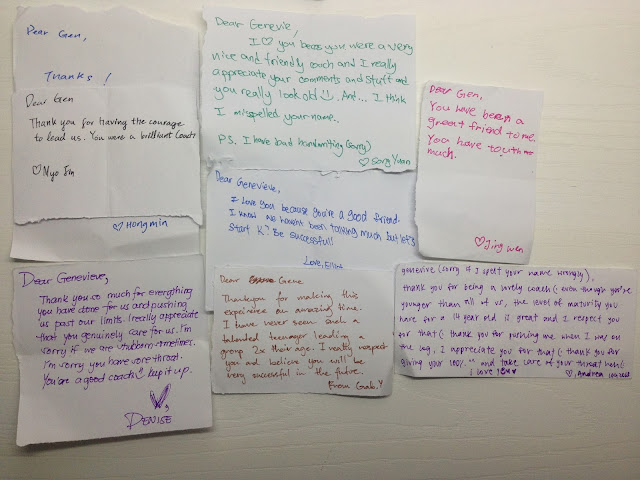 Dear Gen,
Thanks!
Dear Gen
Thank you for having the courage
to lead us. You were a brilliant Coach
♡ Myo
♡ Hongmin
Dear Genevie,
I ♡ you you were a very
nice and friendly coach and I really
appreciate your comments and stuff and
you really look old ☺. And... I think
I misspelled your name..
PS. I have bad handwriting (sorry)
♡ Song Yuan
Dear Gen,
You have been a
great friend to me.
You have me
much.
♡ Jing wen
Dear Genevieve,
I love you because you're a good friend.
I know we haven't been talking much but let's
start K? Be successful!
Love,
Dear Genevieve,
Thank you so much for everything
you have done for us and pushing
us past our limits. I really appreciate
that you genuinely care for us. I'm
sorry if we are stubborn sometimes.
I'm sorry you have sore throat.
You are a good coach ☺ keep it up.
DENISE
Dear Gene
Thankyou for making this
experience an amazing time.
I have never seen such a
talented teenager leading a
group 2x their age. I really respect
you and believe you will be
very successful in the future.
From Gab. Y
genevive (sorry if i spelt your name wrongly),
thank you for being a lovely coach (: even though you're
younger than all of us, the level of maturity you
have for a 14 year old is great and I respect you
for that (: thank you for pushing me when I was on
the log, I appreciate you for that (: thank you for
giving your 100% and take care of your throat
I love you ♥
♡ Andrea